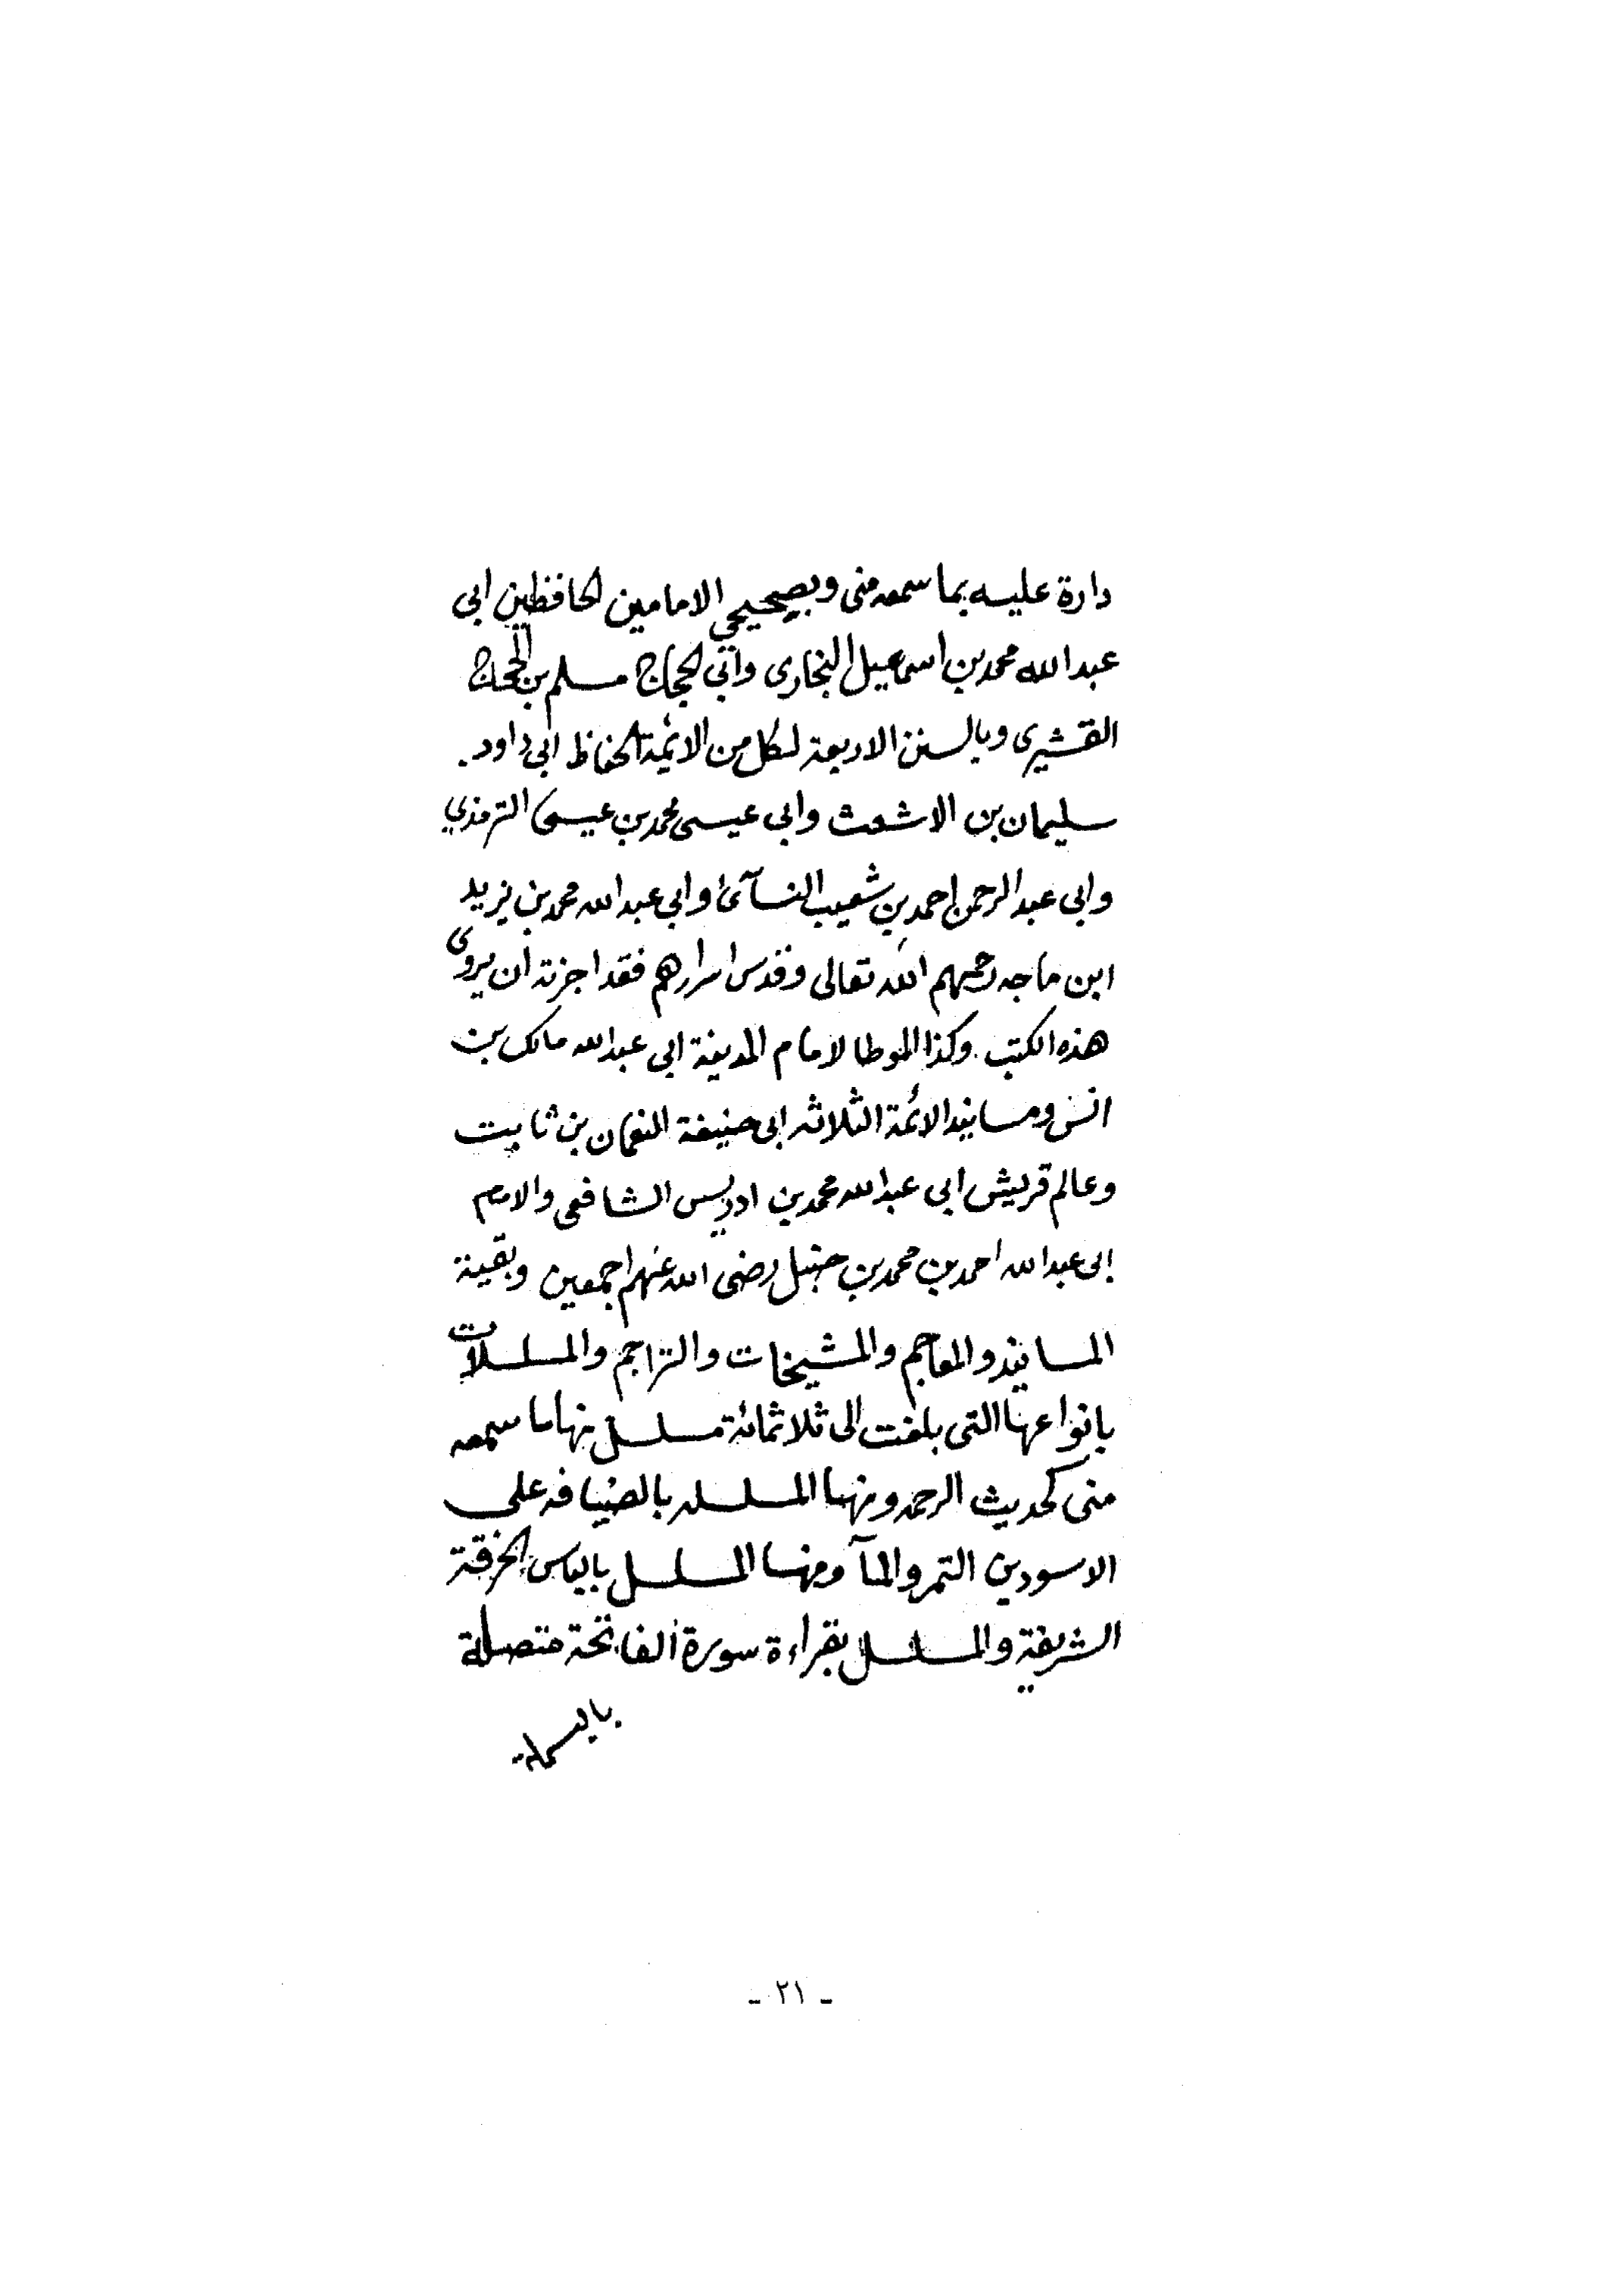 دارة عليه بما سمعه منى وبصحيحي الامامين الحافظين ابى
عبد الله محمد بن اسماعيل البخارى وابى الحجاج مسلم بن الحجاج
القشيرى وبالسنن الاربعة لكل من الائمة الحفاظ ابى داود.
سليمان بن الاشعث وابى عيسى محمد بن عيسى الترمذي
وابى عبد الرحمن احمد بن شعيب النسآئى وابى عبد الله محمد بن يزيد
ابن ماجه رحمهم الله تعالى وقدس اسرارهم فقد اجزته ان يروى
هذه الكتب وكذا الموطا لامام المدينة ابى عبد الله مالك بن
انس ومسانيد الائمة الثلاثه ابى حنيفة النعمان بن ثابت
وعالم قريش ابى عبد الله محمد بن ادريس الشافعى والامام
ابى عبد الله احمد بن محمد بن حنبل رضى الله عنهم اجمعين وبقية
المسانيد والمعاجم والمشيخات والتراجم والمسلسلات
بانواعها التى بلغت الى ثلاثمائة مسلسل منها ما سمعه
منى كحديث الرحمه ومنها المسلسله بالضيافه على
الاسودين التمر والمآ ومنها المسلسل بالباس الخرقة
الشريفة والمسلسل بقراءة سورة الفاتحة متصلة
بالبسملة
- ٢١ -